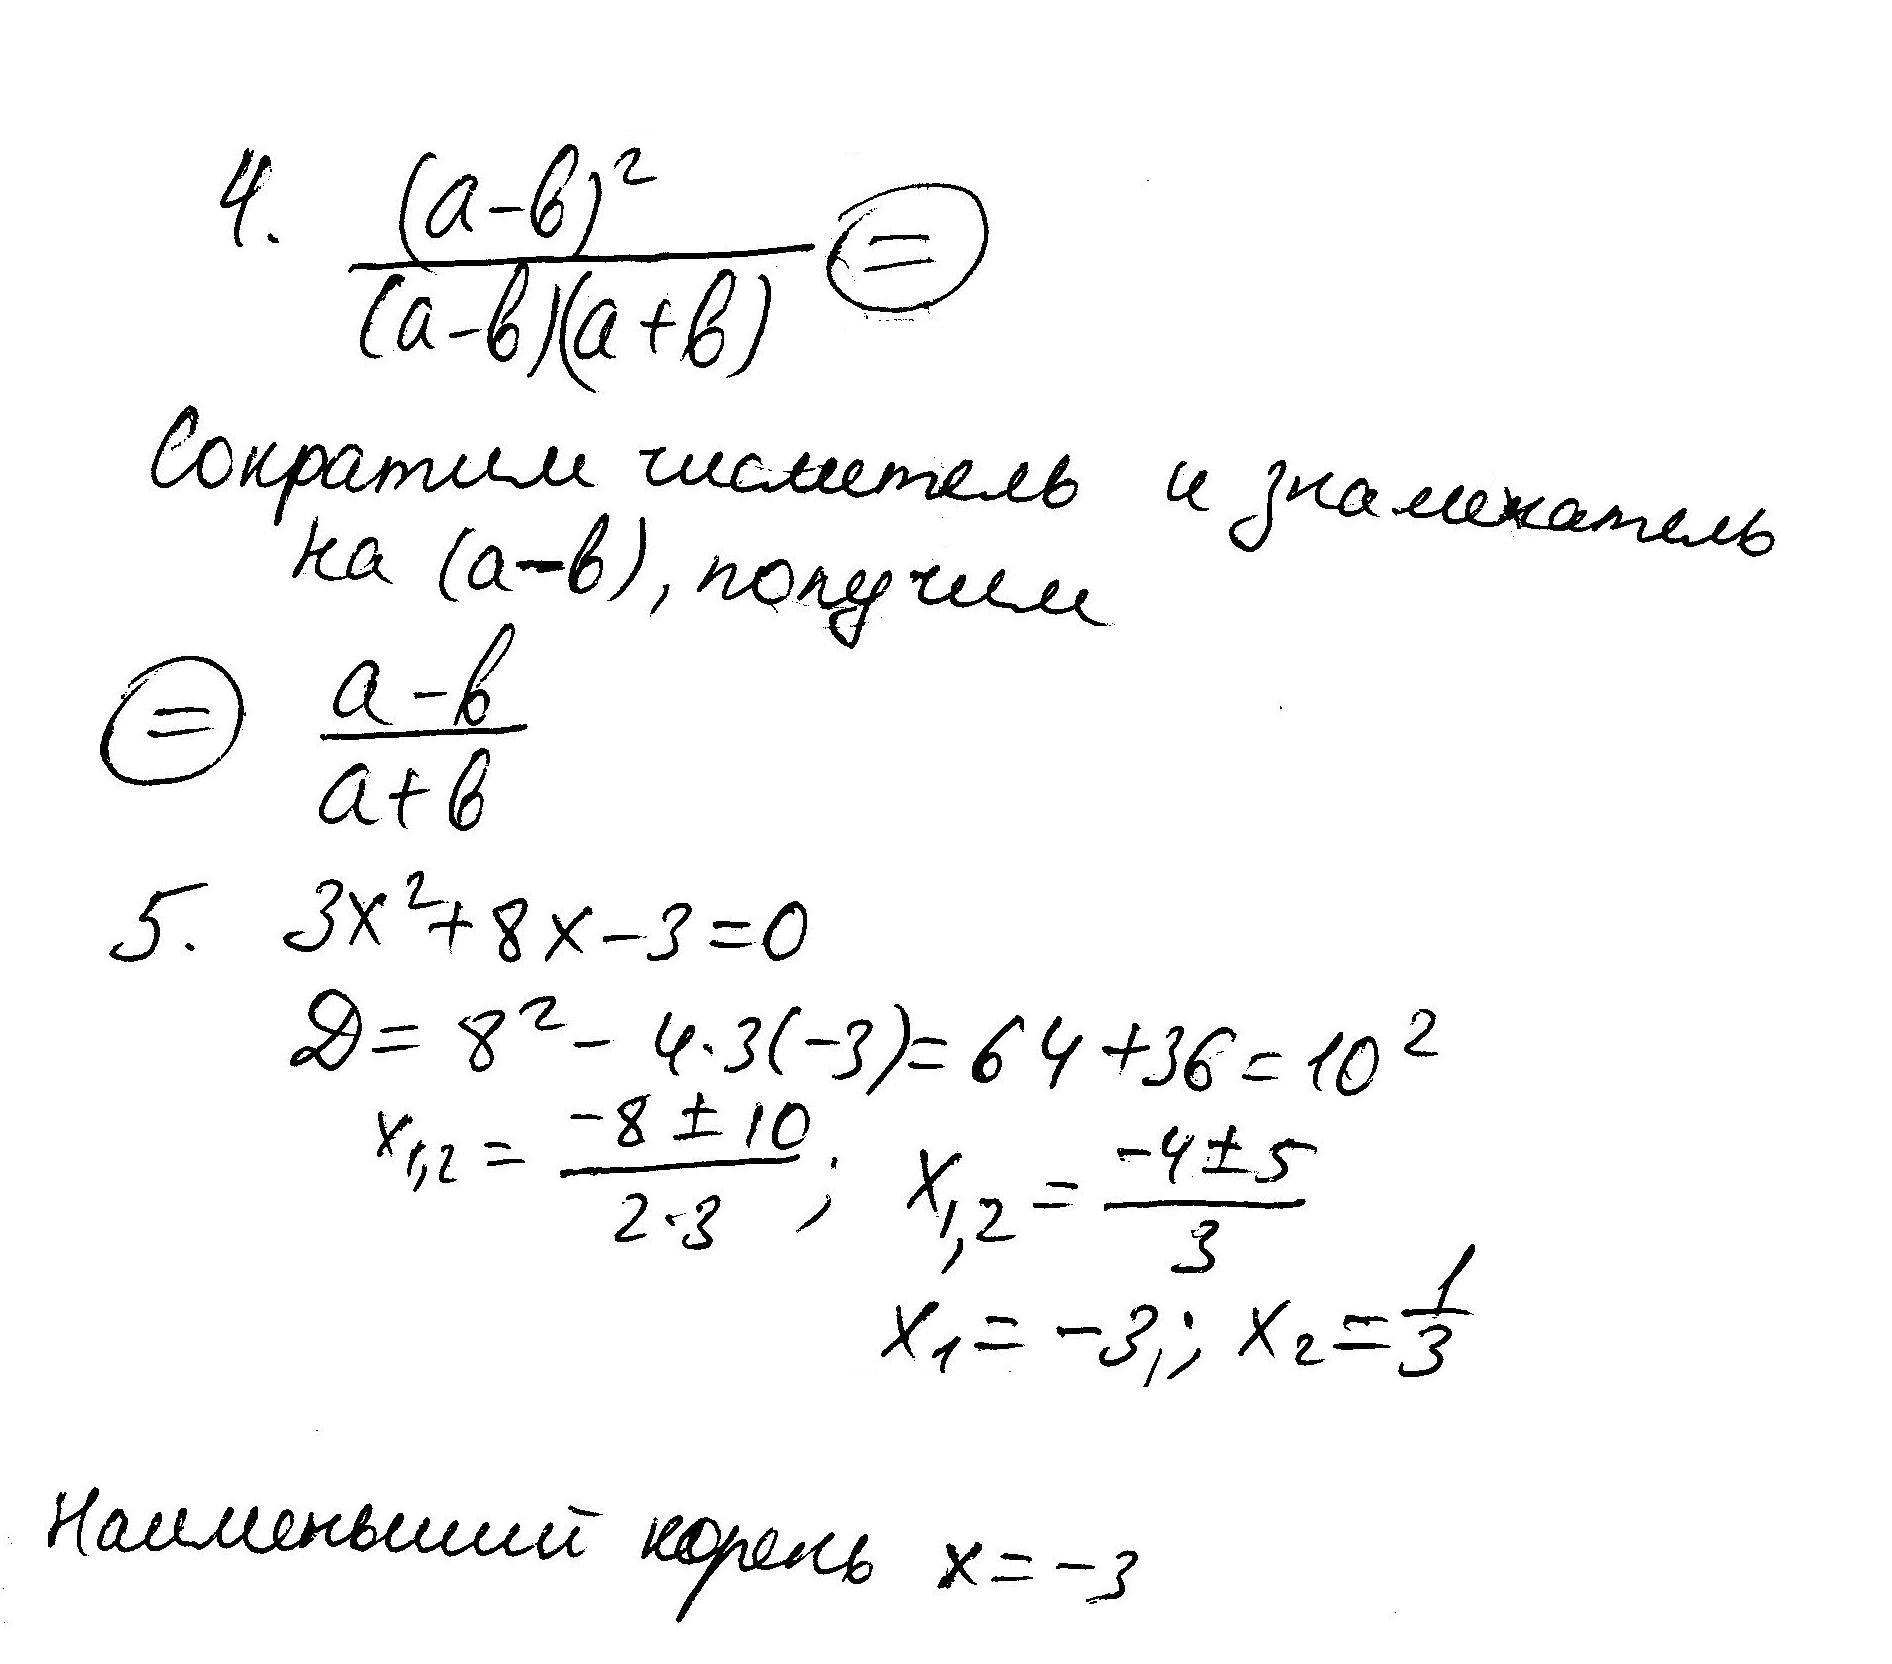 4. (a-b)² / (a-b)(a+b) =
Сократим числитель и знаменатель
на (a-b), получим
= a-b / a+b
5. 3x²+8x-3=0
D= 8² - 4·3(-3)=64+36=10²
x₁,₂ = -8±10 / 2·3 ; x₁,₂ = -4±5 / 3
x₁= -3,; x₂= 1/3
Наименьший корень x=-3